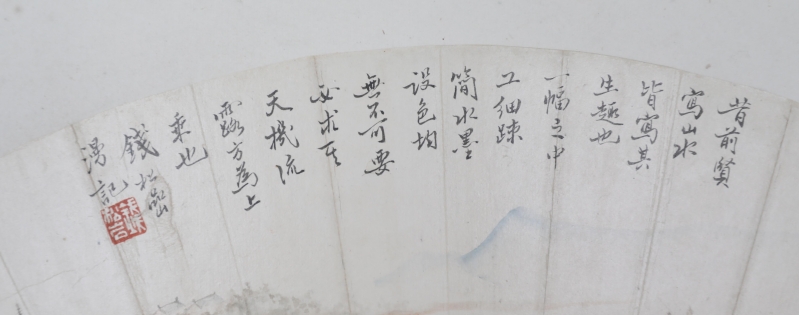 昔前賢
寫山水
皆寫其
生趣也
一幅之中
工細疎
簡水墨
設色均
無不可要
必求其
天機流
露方為上
乘也
錢松嵒
漫記